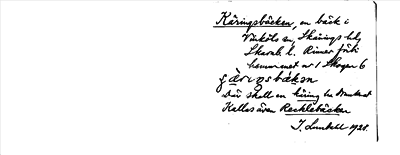 Käringsbäcken, en bäck i
Vinköls sn, Skånings hd
Skarab. l. Rinner från
hemmanet nr 1 Skogen 6
gäringsbäkən
Där skall en käring ha drunknat
Kallas även Recklebäcken
J. Lundahl 1928.